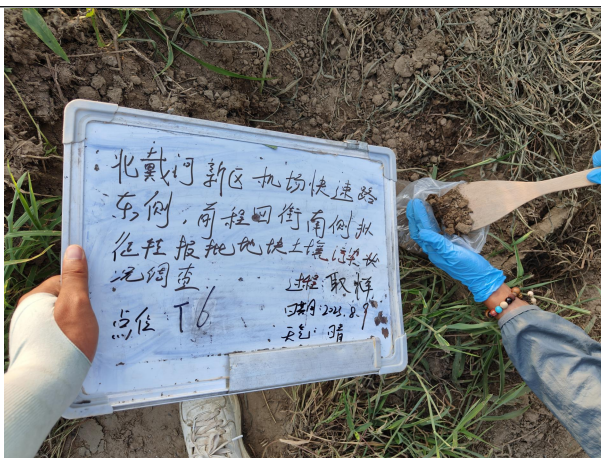 北戴河新区机场快速路
东侧，前程四街南侧拟
征程报批地块土壤污染状
况调查
过程 取样
点位 T6
日期:2025.8.9
天气:晴